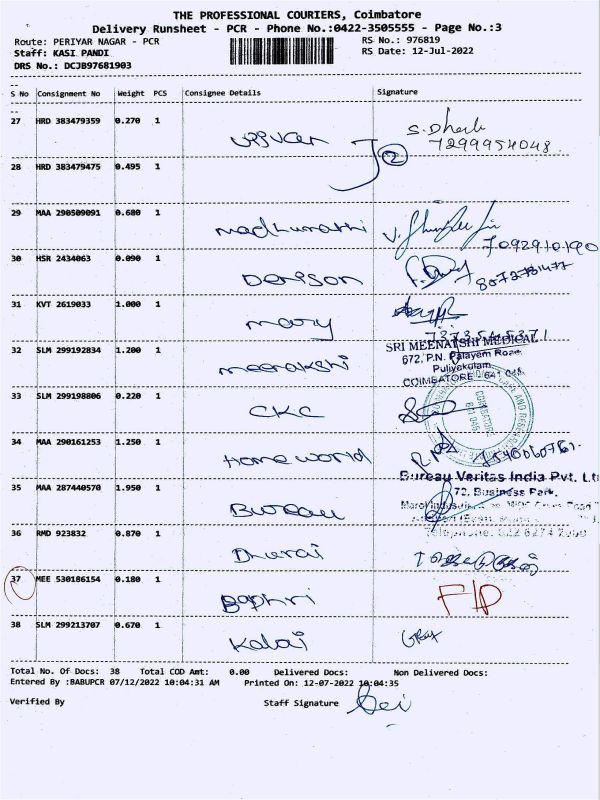 THE PROFESSIONAL COURIERS, Coimbatore
Delivery Runsheet - PCR - Phone No.:0422-3505555 - Page No.:3
Route: PERIYAR NAGAR - PCR RS No.: 976819
Staff: KASI PANDI RS Date: 12-Jul-2022
DRS No.: DCJB97681903
S No Consignment No Weight PCS Consignee Details Signature
27 HRD 383479359 0.270 1 S. Dharb
7299954048
28 HRD 383479475 0.495 1 2
29 MAA 290509091 0.680 1 madhumathi
7092910190
30 HSR 2434063 0.090 1 Denison
31 KVT 2619033 1.000 1 mary
32 SLM 299192834 1.200 1 meenakshi SRI MEENATSHI MEDICAL
672, P.N. Palayam Road,
Puliyakulam,
COIMBATORE - 641 045.
33 SLM 299198806 0.220 1 CKC
COIMBATORE
34 MAA 290161253 1.250 1 Home world
35 MAA 287440570 1.950 1 Bureau Bureau Veritas India Pvt. Lt
72, Business Park,
36 RMD 923832 0.870 1 Dhurai
37 MEE 530186154 0.180 1
38 SLM 299213707 0.670 1 Kalai
Total No. Of Docs: 38 Total COD Amt: 0.00 Delivered Docs: Non Delivered Docs:
Entered By :BABUPCR 07/12/2022 10:04:31 AM Printed On: 12-07-2022 10:04:35
Verified By Staff Signature